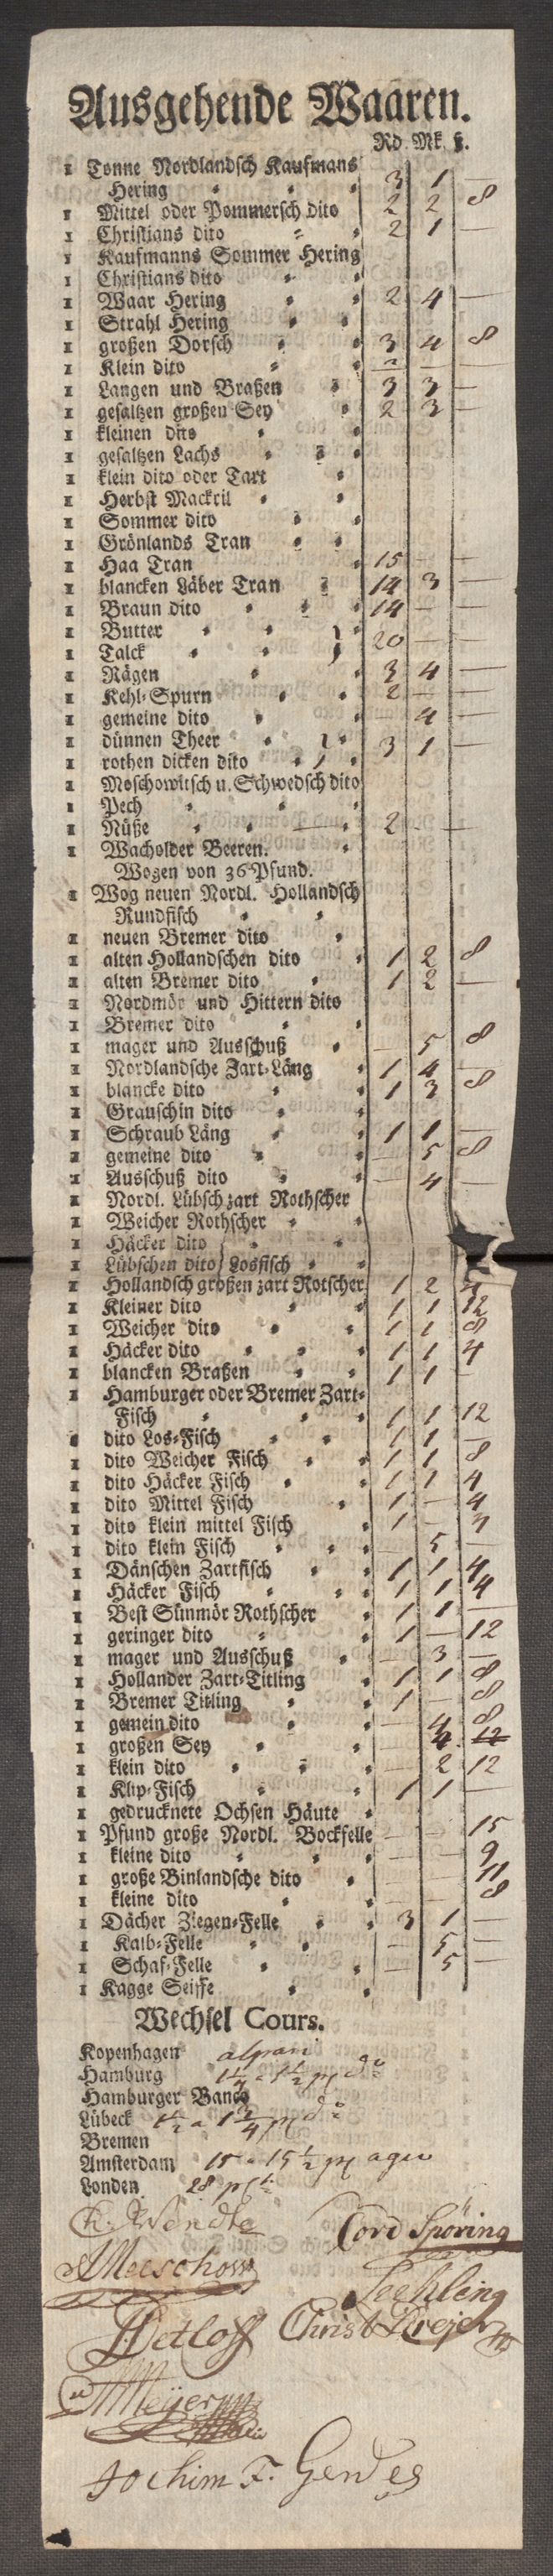 Ausgehende Waaren.
Rd. Mk. ß.
1 Tonne Nordlandsch Kaufmans
Hering 3 1 —
1 Mittel oder Pommersch dito 2 2 8
1 Christians dito 2 1 —
1 Kaufmanns Sommer Hering
1 Christians dito
1 Waar Hering 2 4 —
1 Strahl Hering
1 großen Dorsch 3 4 8
1 Klein dito 2 — —
1 Langen und Braßen 3 3 —
1 gesaltzen großen Sey 2 3 —
1 kleinen dito
1 gesaltzen Lachs
1 klein dito oder Tart
1 Herbst Mackril
1 Sommer dito
1 Grönlands Tran
1 Haa Tran 15 — —
1 blancken Läber Tran 14 3 —
1 Braun dito 14 — —
1 Butter
1 Talck 20 — —
1 Rägen 3 4 —
1 Kehl-Spurn 2 — —
1 gemeine dito 4 —
1 dünnen Theer
1 rothen dicken dito 3 1 —
1 Moschowitsch u. Schwedsch dito
1 Pech
1 Nüße — 2 - —
1 Wacholder Beeren.
Wogen von 36 Pfund.
1 Wog neuen Nordl. Hollandsch
Rundfisch
1 neuen Bremer dito
1 alten Hollandschen dito 1 2 8
1 alten Bremer dito 1 2 —
1 Nordmör und Hittern dito
1 Bremer dito
1 mager und Ausschuß — 5 8
1 Nordlandsche Zart-Läng 1 4 —
1 blancke dito 1 3 8
1 Grauschin dito
1 Schraub Läng 1 1 —
1 gemeine dito — 5 8
1 Ausschuß dito — 4 —
1 Nordl. Lübsch zart Rothscher
1 Weicher Rothscher
1 Häcker dito
1 Lübschen dito Losfisch
1 Hollandsch großen zart Rotscher 1 2 4
1 Kleiner dito 1 1 12
1 Weicher dito 1 1 8
1 Häcker dito 1 1 4
1 blancken Braßen 1 1 —
1 Hamburger oder Bremer Zart-
Fisch 1 1 12
1 dito Los-Fisch 1 1 —
1 dito Weicher Fisch 1 1 8
1 dito Häcker Fisch 1 1 4
1 dito Mittel Fisch 1 — 4
1 dito klein mittel Fisch 1 — 4
1 dito klein Fisch — 5 —
1 Dänschen Zartfisch 1 1 4
1 Häcker Fisch 1 1 4
1 Best Sünmör Rothscher 1 1 —
1 geringer dito 1 — 12
1 mager und Ausschuß — 3 —
1 Hollander Zart-Titling 1 1 8
1 Bremer Titling 1 — 8
1 gemein dito — 4 8
1 großen Sey — 4 12
1 klein dito — 2 12
1 Klip-Fisch 1 1 —
1 gedrucknete Ochsen Häute
1 Pfund große Nordl. Bockfelle — — 15
1 kleine dito — — 9
1 große Binlandsche dito — — 11
1 kleine dito — — 8
1 Dächer Ziegen-Felle 3 1 —
1 Kalb-Felle — 5 —
1 Schaf-Felle — 5 —
1 Kagge Seiffe
Wechsel Cours.
Kopenhagen alpari
Hamburg 1¼ a 1½ pC do
Hamburger Banco
Lübeck 1½ a 1¾ pC do
Bremen
Amsterdam 15 a 15½ pC agio
Londen
Wendte
Cord Spöring
Meeschow
Detloff
Christ Dreyer
Meÿer
Jochim F. Gerdes